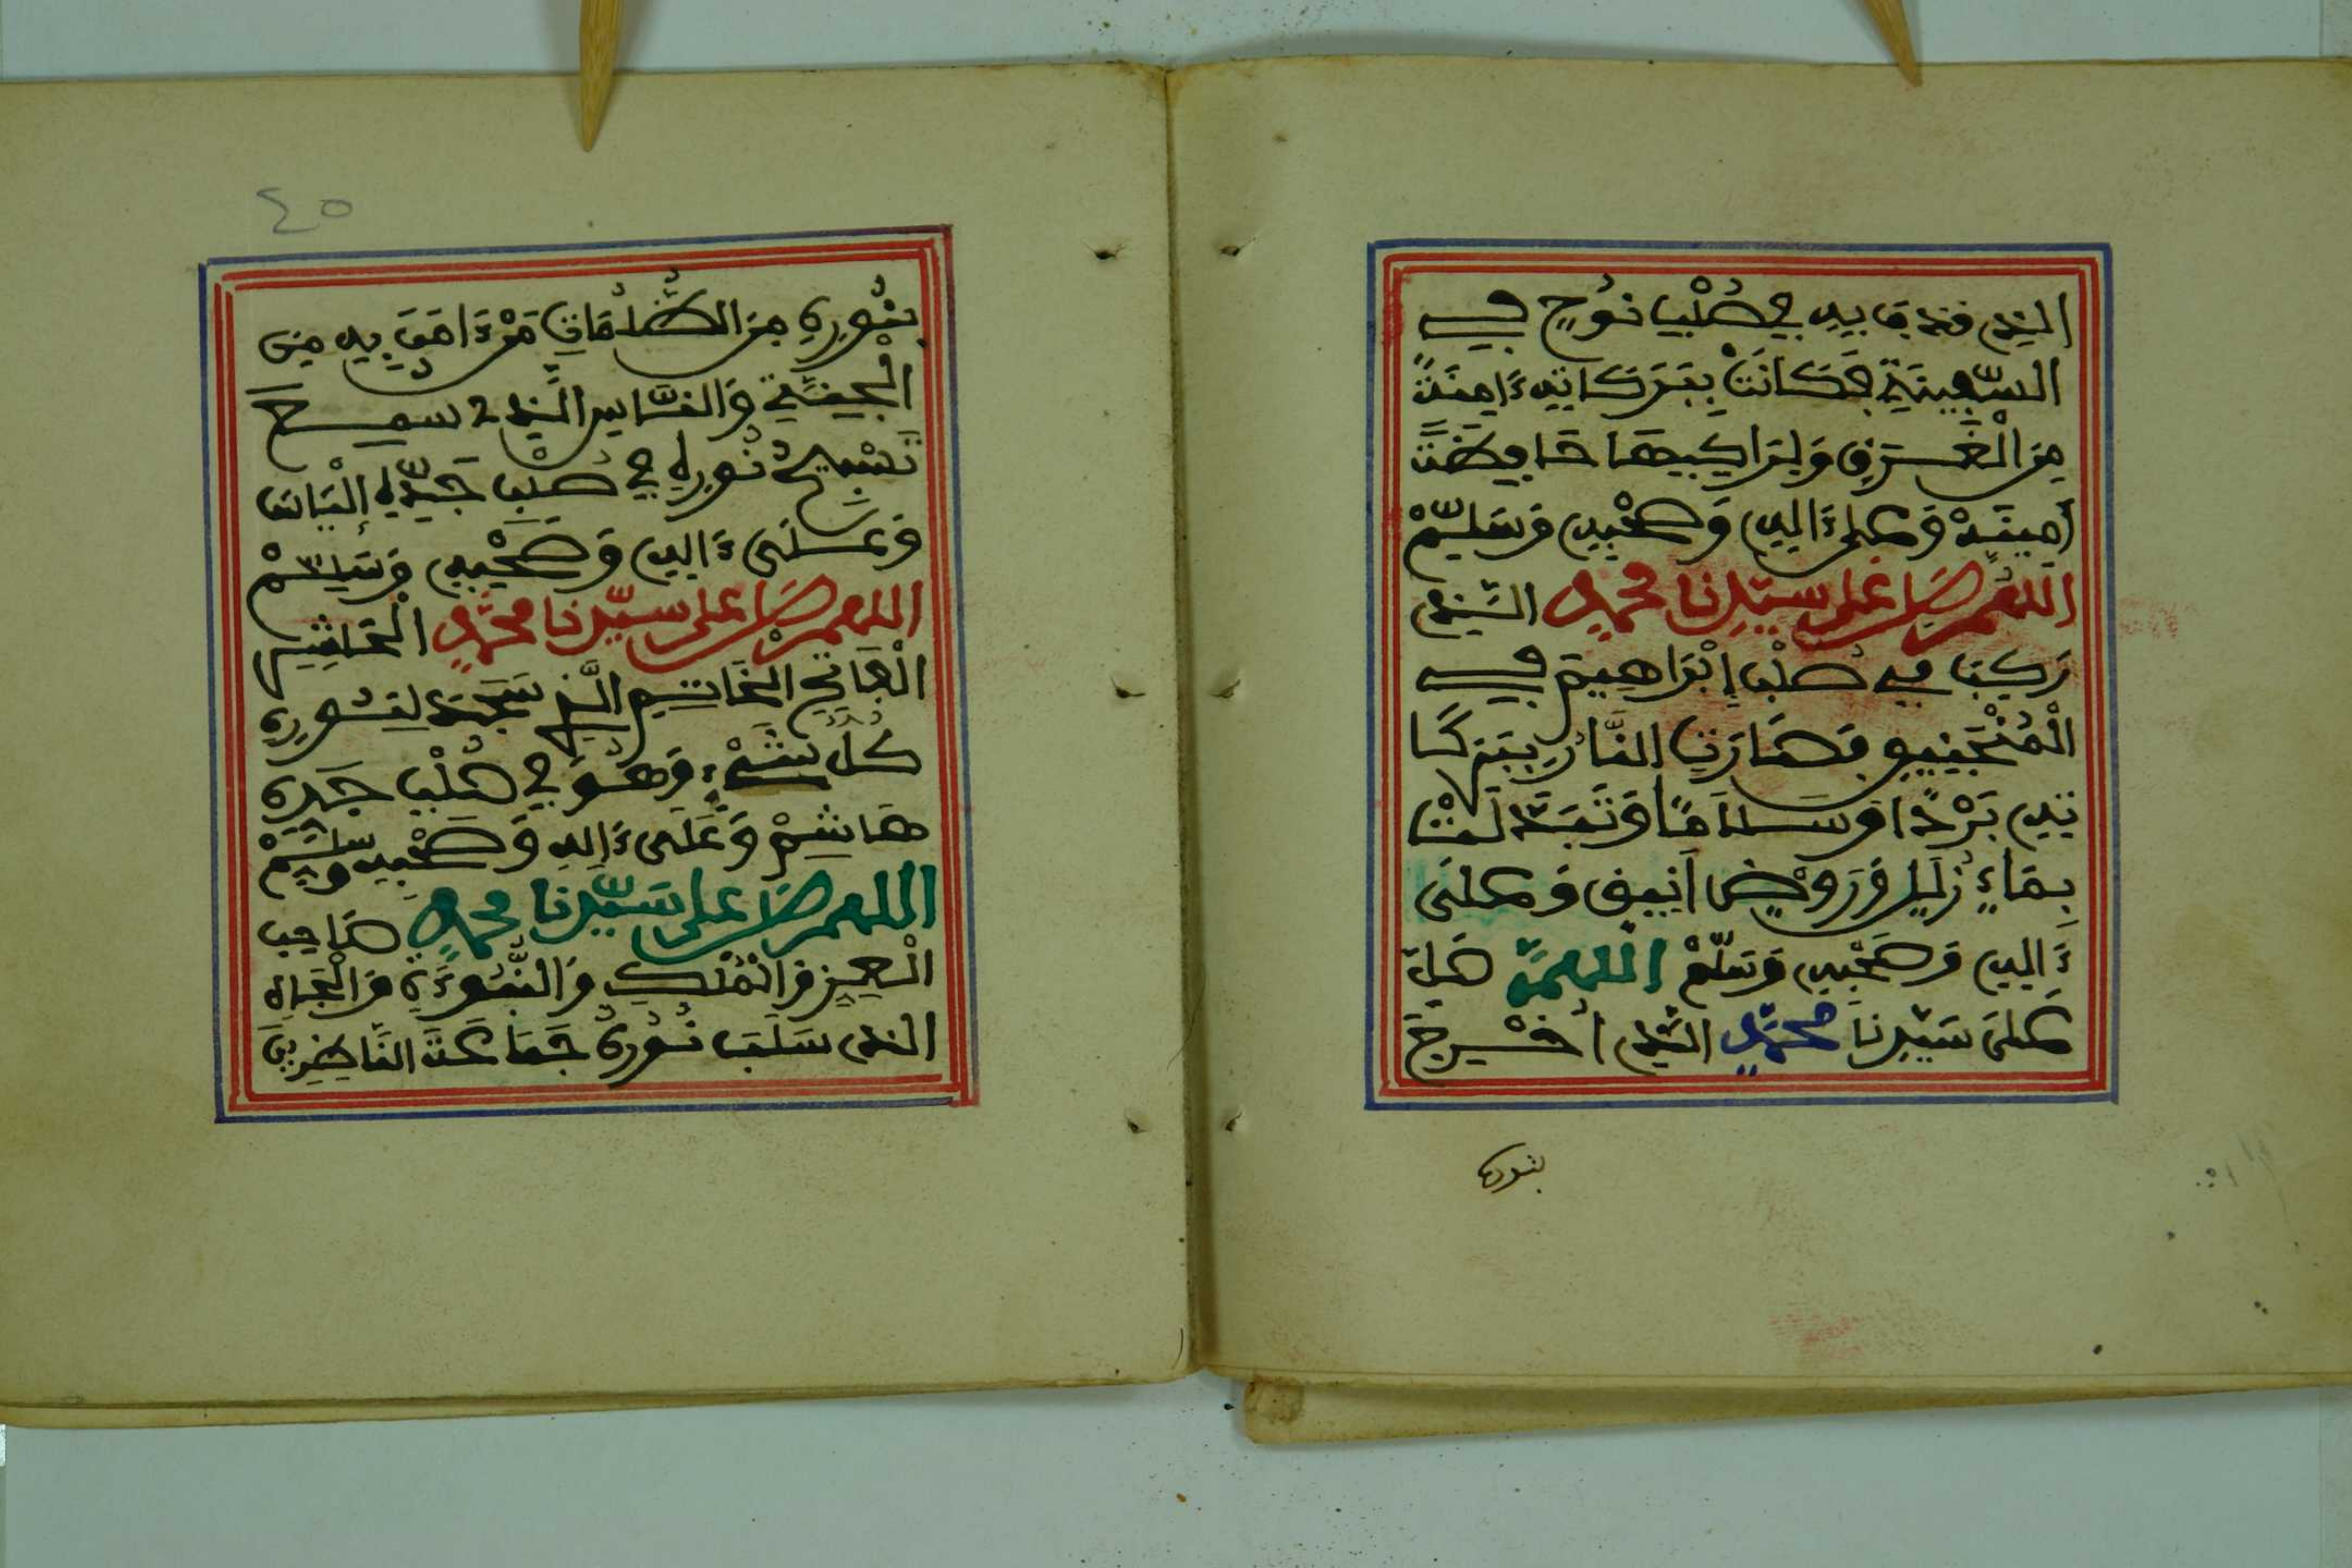 الذي قذف به في صُلْبِ نُوحٍ في
السّفينَةِ فَكَانَتْ بِبَرَكَاتِهِ ءَامِنَةً
مِنَ الْغَرَقِ وَلِرَاكِبِهَا حَافِظَةً
أَمِينَةْ وَعلى ءَالِهِ وَصَحْبِهِ وَسَلِّمْ
اللهُم صَلِّ على سَيّدِنا محمدٍ الذِي
رَكِبَ في صُلْبِ إِبْرَاهِيمَ في
الْمُنْجَنِيقِ فَصَارَتِ النَّارُ بِبَركَا
تِهِ بَرْدًا وَسَلَامًا وَتَبَدَّلَتْ
بِمَاءٍ زُلَلٍ وَرَوْضٍ أَنِيقٍ وَعلَى
ءَالِهِ وَصَحْبِهِ وَسَلّمْ اللهمَّ صَلِّ
علىَ سَيّدِنَا محمّدٍ الذِي أخْرجَ
بنوره
٤٥
بِنُورِهِ مِنَ الظُّلُمَاتِ مَنْ ءَامَنَ بِهِ مِنَ
الْجِنَّةِ وَالنَّاسِ الَّذِي سمع
تَسْبِيحُ نُورِهِ في صُلْبِ جَدِّهِ إِلْيَاسَ
وَعَلَى ءَالِهِ وَصَحْبِهِ وَسَلِّمْ
اللهم صَلِّ على سَيّدِنا محمَّدٍ الْعَاقِبِ
الْفَاتِحِ الخَاتِمِ الَّذِي سَجَدَ لِنُورِهِ
كُلُّ شَيْءٍ وَهُوَ في صُلْبِ جَدِّهِ
هَاشِمْ وَعَلَى ءَالِهِ وَصَحْبِهِ وَسَلِّمْ
اللهم صَلِّ على سَيّدِنا محمدٍ صَاحِبِ
الْعِزِ وَالْمُلْكِ وَالنُّبُوءَةِ وَالْجَاهِ
الذي سَلَبَ نُورُهُ جَمَاعَةَ النَّاظِرِينَ